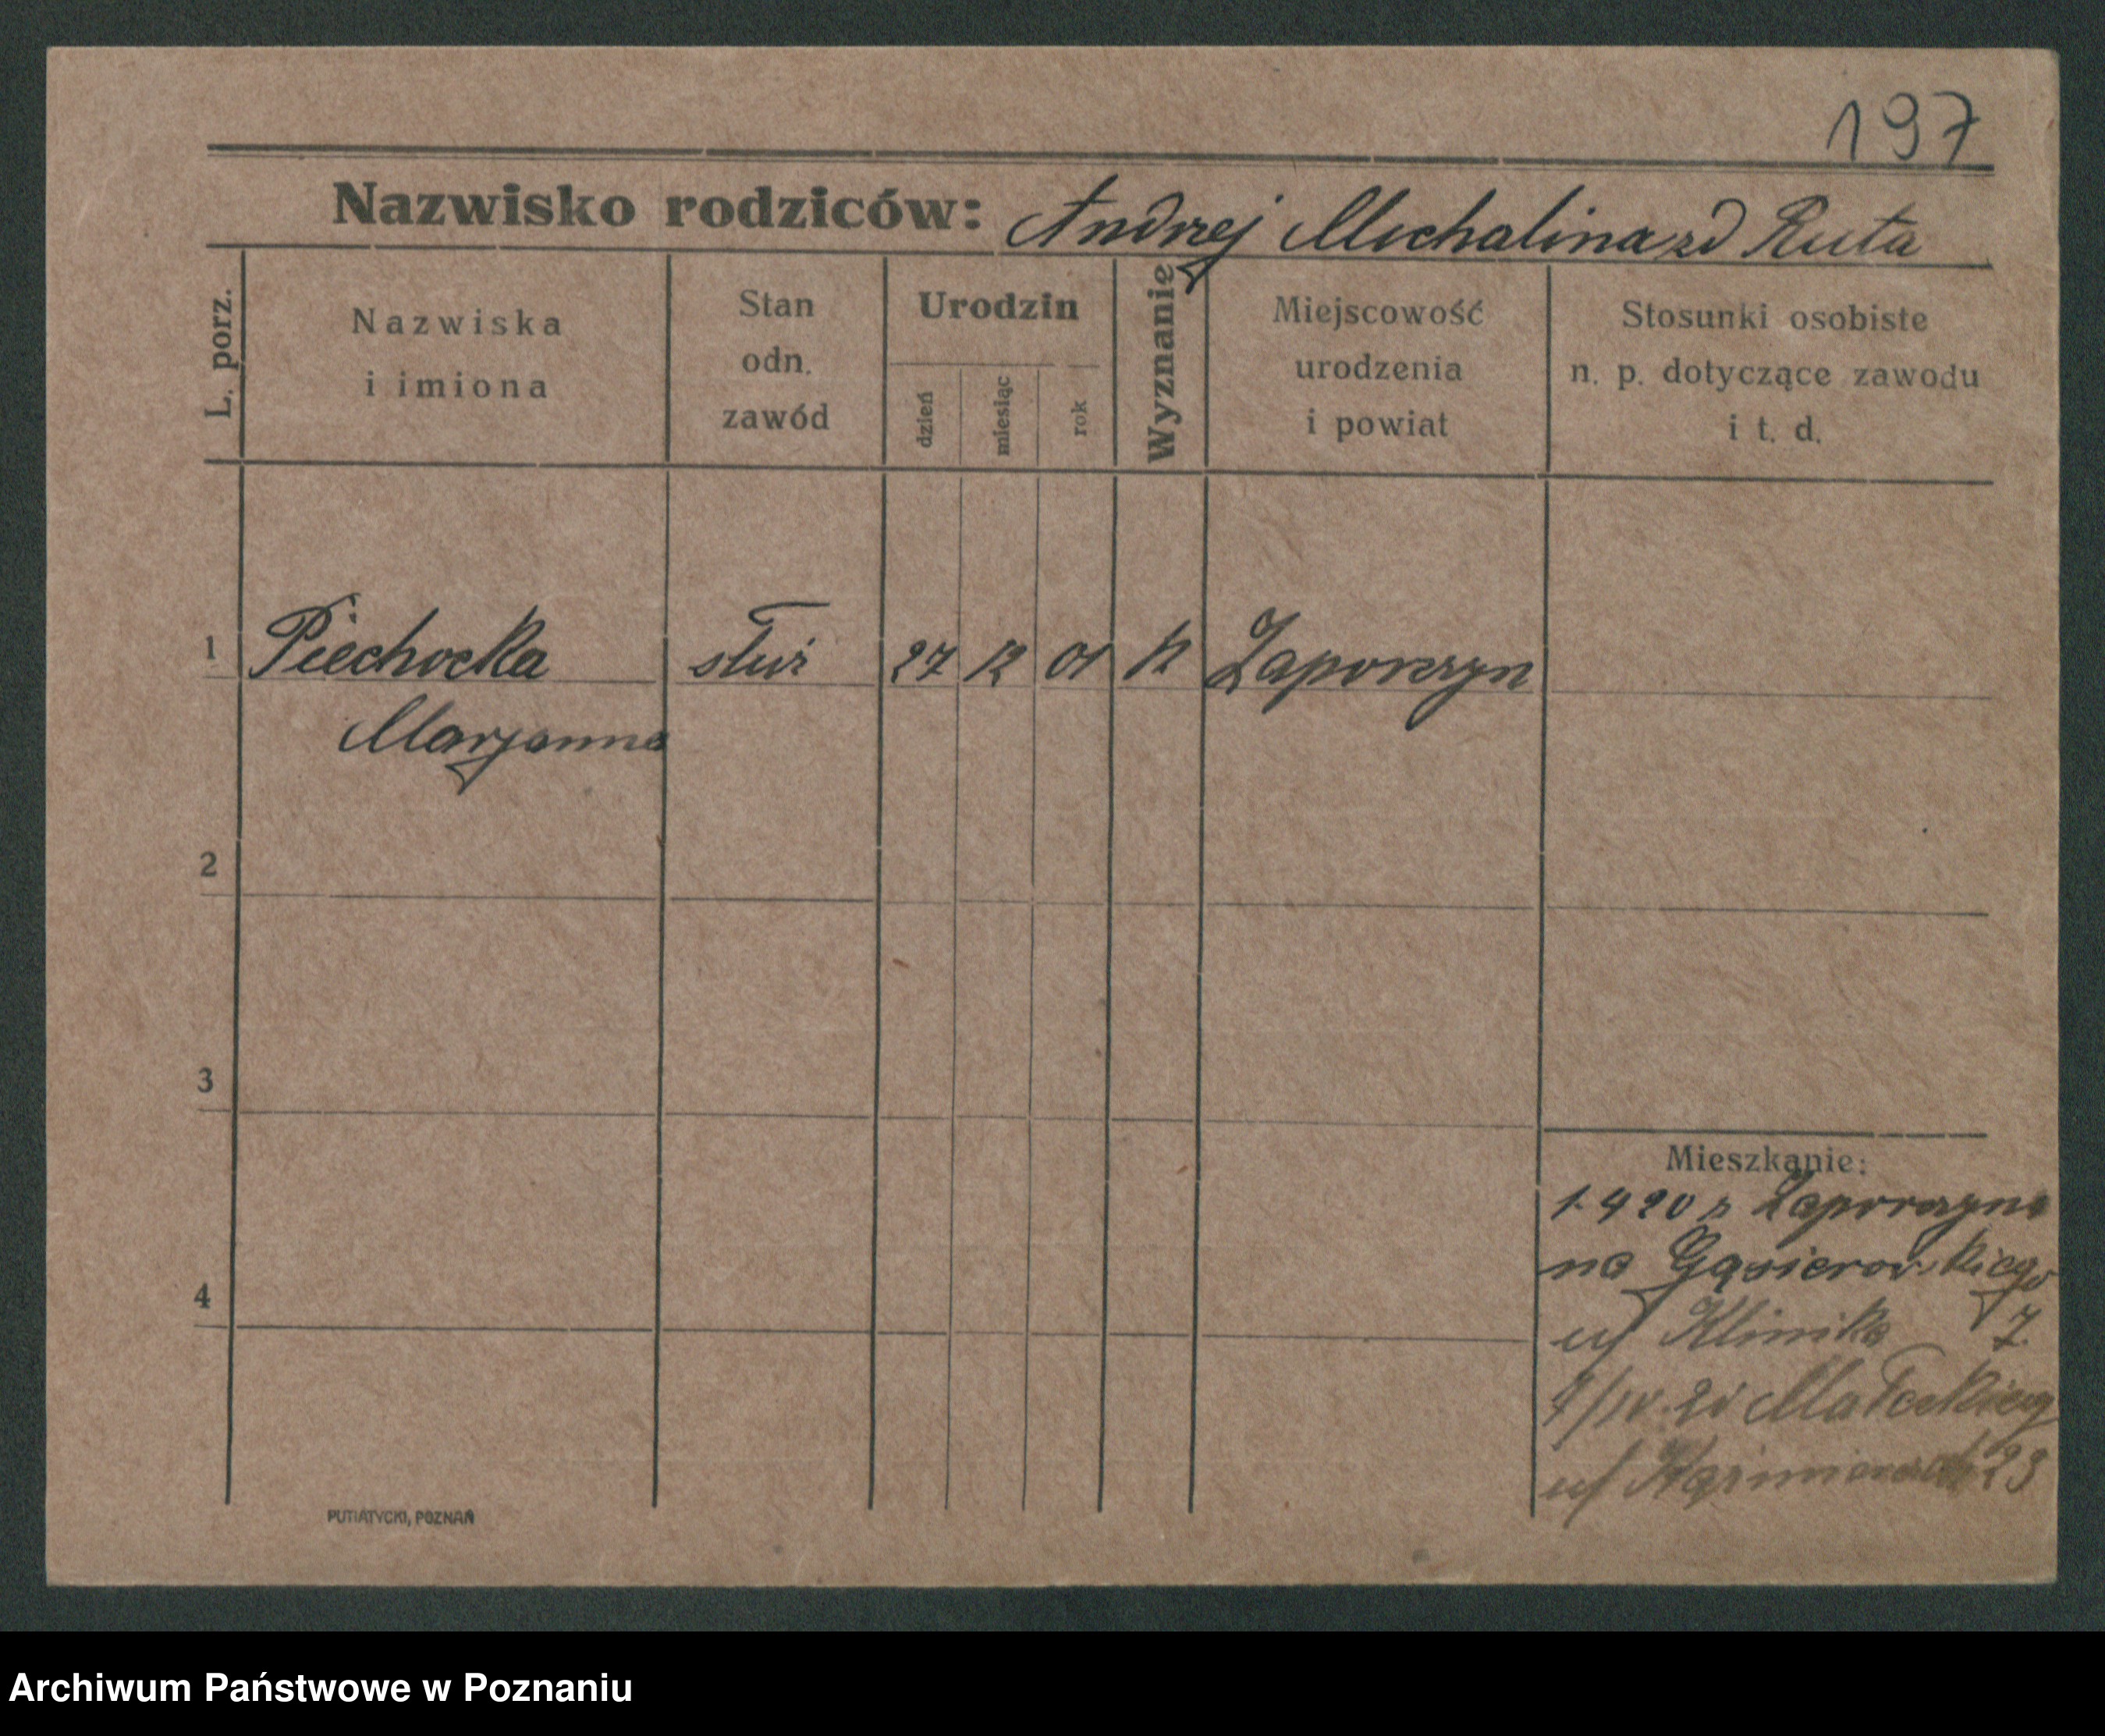 197
Nazwisko rodziców: Andrzej Michalina zd Ruta
L. porz.
Nazwiska
i imiona
Stan
odn.
zawód
Urodzin
dzień
miesiąc
rok
Wyznanie
Miejscowość
urodzenia
i powiat
Stosunki osobiste
n. p. dotyczące zawodu
i t. d.
1 Piechocka służ 27 12 01 k Zaporszyn
Marjanna
2
3
4
Mieszkanie:
1. 4 20 z Zaporszyna
na Gąsierowskiego
u/ Klinika 7
Małeckiego
u/ 23
PUTIATYCKI, POZNAŃ
Archiwum Państwowe w Poznaniu